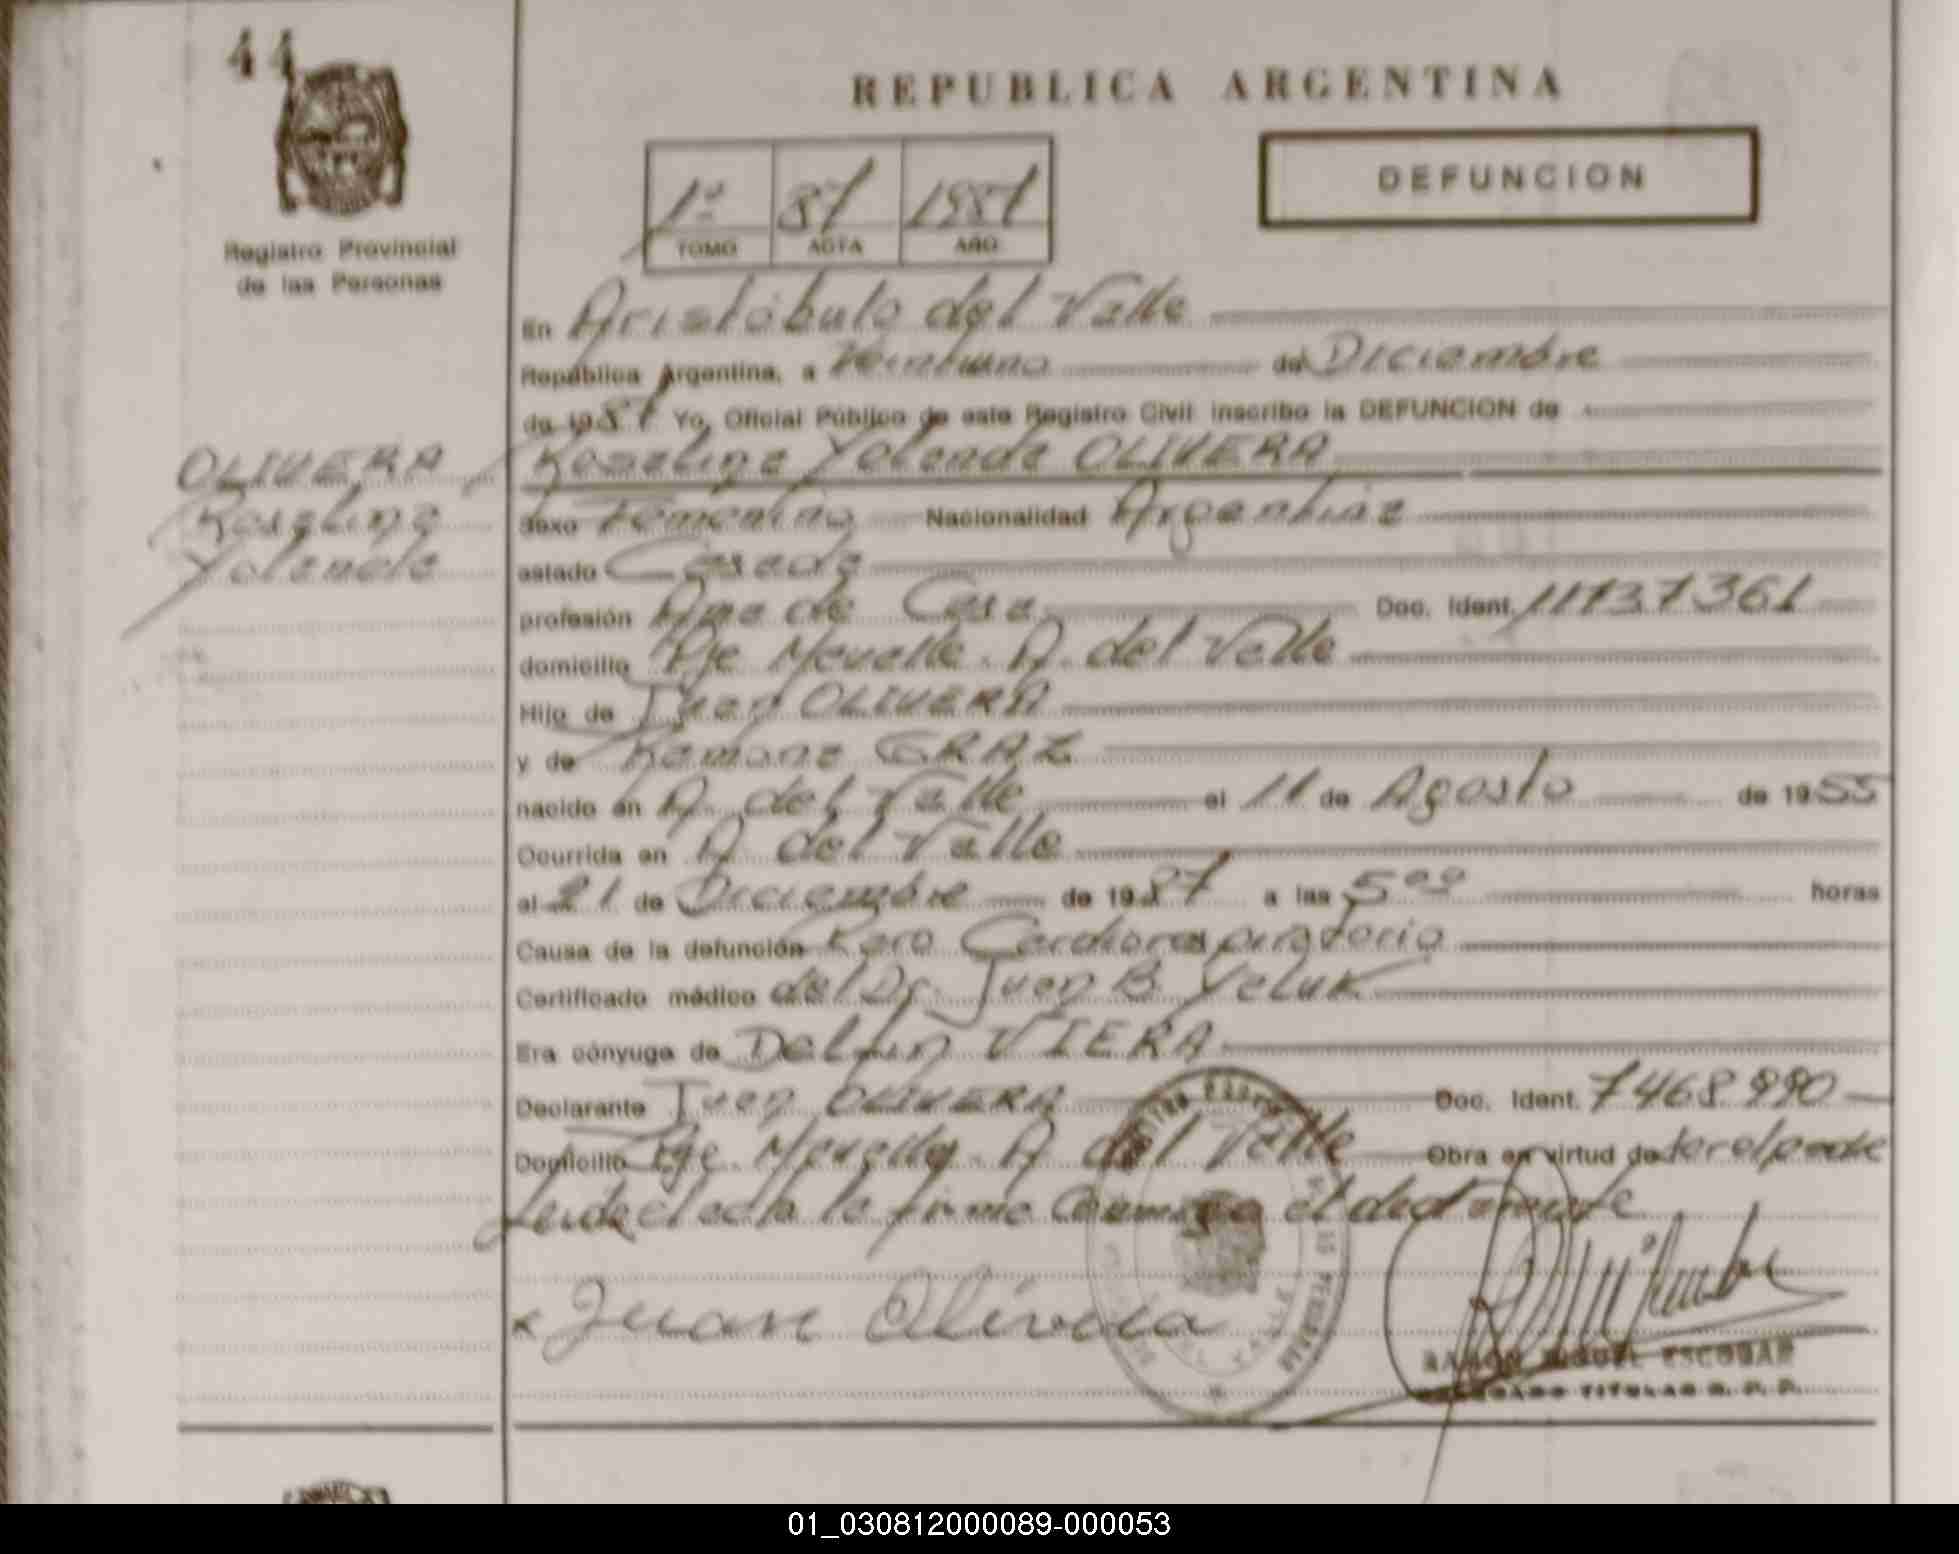 44
REPUBLICA ARGENTINA
1º 87 1987
TOMO ACTA AÑO
DEFUNCION
Registro Provincial
de las Personas
En Aristóbulo del Valle
República Argentina, a Veintiuno de Diciembre
de 1987 Yo, Oficial Público de este Registro Civil inscribo la DEFUNCION de
OLIVERA
Roselina
Yolanda
Roselina Yolanda OLIVERA
sexo Femenino Nacionalidad Argentina
estado Casada
profesión Ama de Casa Doc. Ident. 11737361
domicilio Pje A. del Valle
Hijo de Juan OLIVERA
y de Ramona GRAZ
nacido en A. del Valle el 11 de Agosto de 1955
Ocurrida en A del Valle
el 21 de Diciembre de 1987 a las 5ºº horas
Causa de la defunción Paro Cardiorespiratorio
Certificado médico del Dr. Juan B. Yeluk
Era cónyuge de Delfin VIERA
Declarante Juan OLIVERA Doc. Ident. 7468.990
Domicilio Pje. A del Valle Obra en virtud de
Leida el acta la firma Conmigo el declarante
x Juan Olivera
RAMON MIGUEL ESCOBAR
DELEGADO TITULAR R. P. P.
01_030812000089-000053